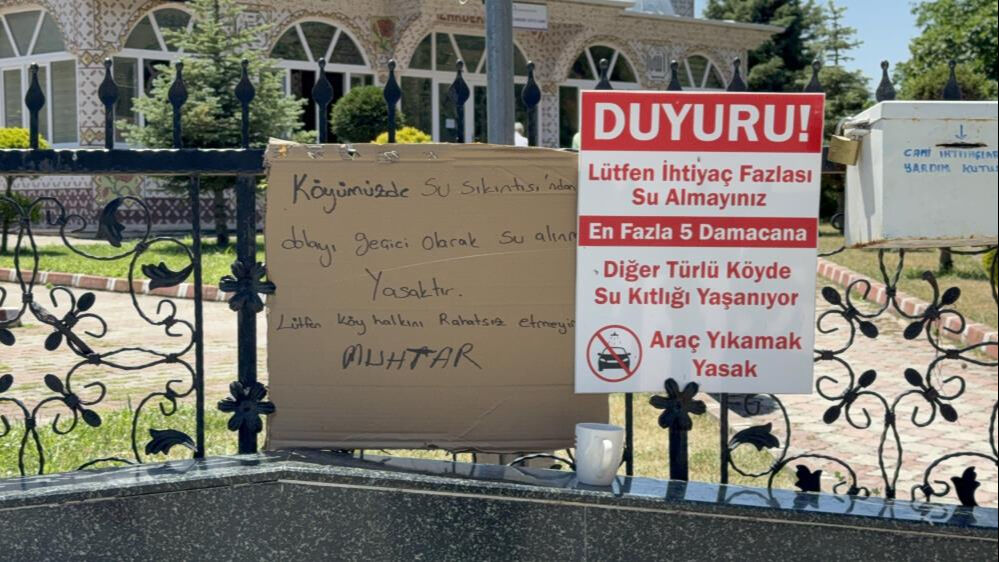 Köyümüzde Su Sıkıntısı'ndan
dolayı geçici olarak su
Yasaktır.
Lütfen köy halkını Rahatsız etmeyin
MUHTAR
DUYURU!
Lütfen İhtiyaç Fazlası
Su Almayınız
En Fazla 5 Damacana
Diğer Türlü Köyde
Su Kıtlığı Yaşanıyor
Araç Yıkamak
Yasak
CAMİ İHTİYAÇLARI
YARDIM KUTUSU